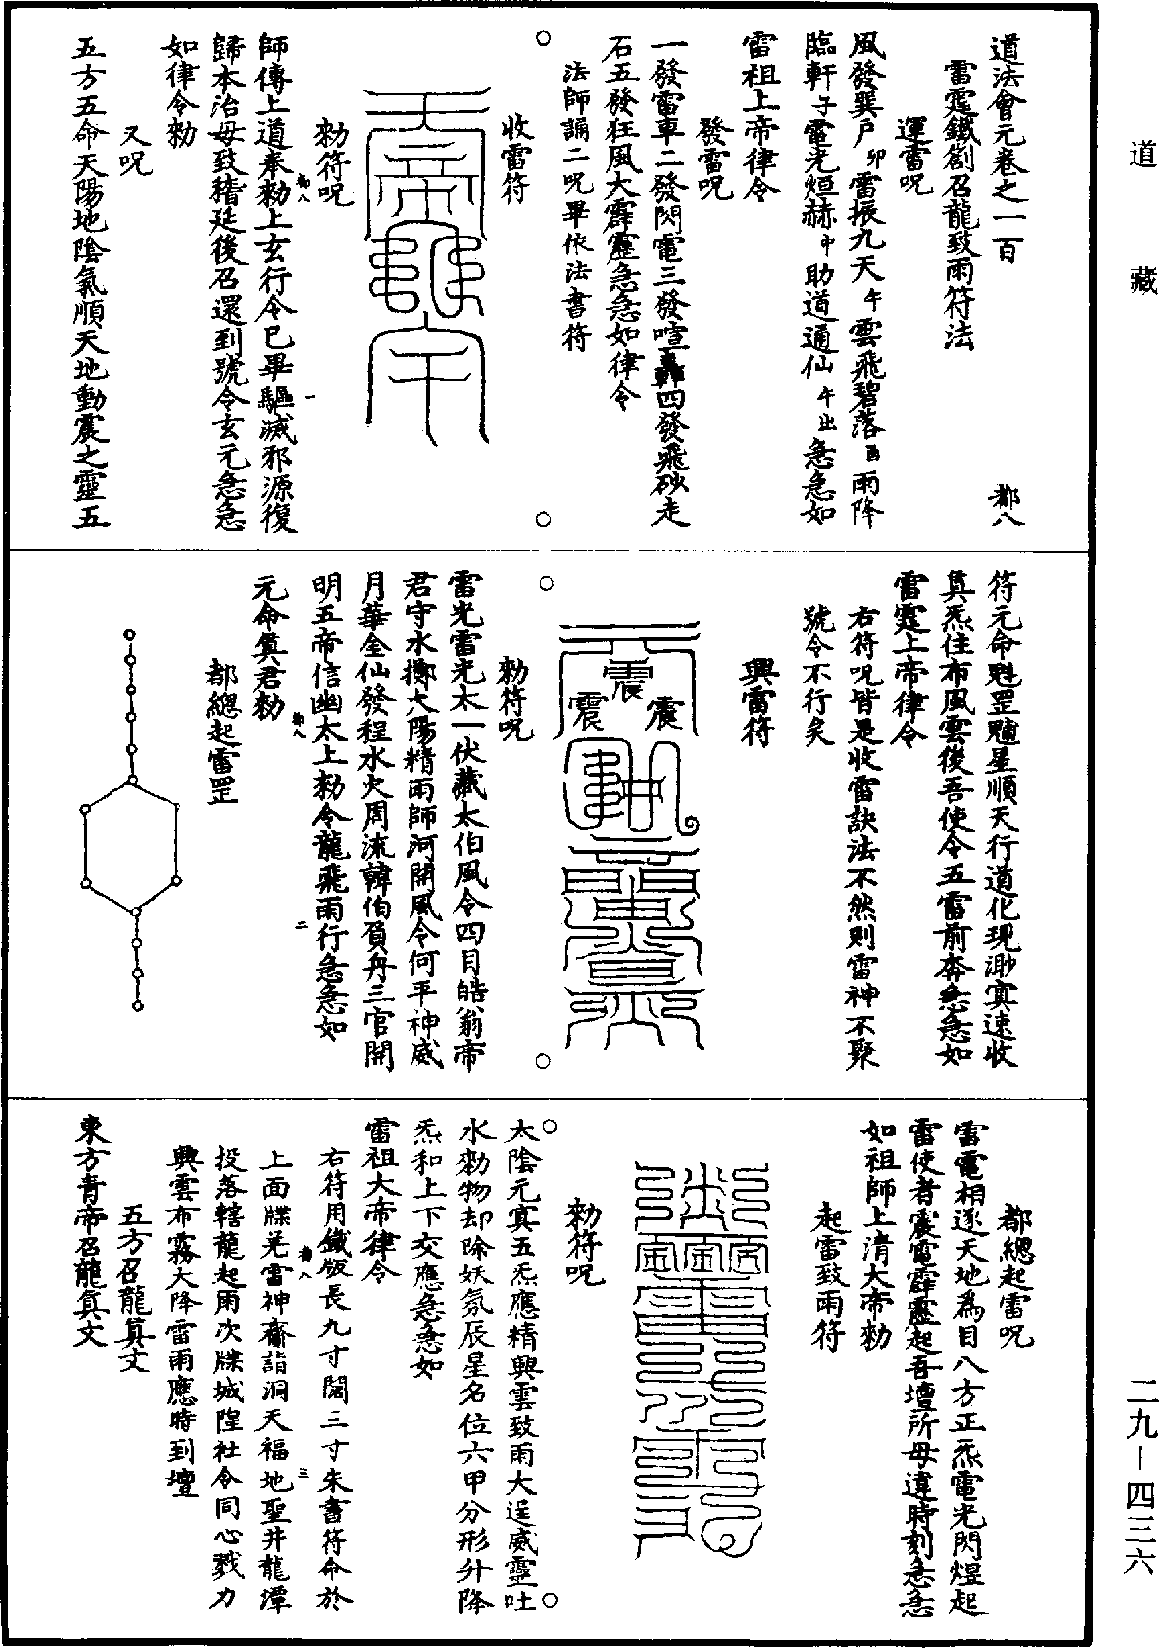 道藏
二九—四三六
道法會元卷之一百 都八
雷霆鐵劄召龍致雨符法
運雷呪
風發巽戶卯雷振九天午雲飛碧落酉雨降
臨軒子電光烜赫中助道通仙午出急急如
雷祖上帝律令
發雷呪
一發雷車二發閃電三發喧轟四發飛砂走
石五發狂風大霹靂急急如律令
法師誦二呪畢依法書符
收雷符
勑符呪
師傳上道奉勑上玄行令巳畢驅滅邪源復
歸本治毋致稽延後召還到號令玄元急急
如律令勑
又呪
五方五命天陽地陰氣順天地動震之靈五
都八 一
符元命魁罡魒星順天行道化現渺寞速收
真炁住布風雲後吾使令五雷前奔急急如
雷霆上帝律令
右符呪皆是收雷訣法不然則雷神不聚
號令不行矣
興雷符
震
震 震
勑符呪
雷光雷光太一伏藏太伯風令四目皓翁帝
君守水擲火陽精雨師河開風令何平神威
月華金仙發程水火周流韓伯負舟三官開
明五帝信幽太上勑令龍飛雨行急急如
元命真君勑
都總起雷罡
都八 二
都總起雷呪
雷電相逐天地為目八方正炁電光閃煜起
雷使者震雷霹靂起吾壇所毋違時刻急急
如祖師上清大帝勑
起雷致雨符
勑符呪
太陰元寞五炁應精興雲致雨大逞威靈吐
水勑物却除妖氛辰星名位六甲分形升降
炁和上下交應急急如
雷祖大帝律令
右符用鐵版長九寸闊三寸朱書符命於
上面牒羌雷神齎詣洞天福地聖井龍潭
投落轄龍起雨次牒城隍社令同心戮力
興雲布霧大降雷雨應時到壇
五方召龍真文
東方青帝召龍真文
都八 三